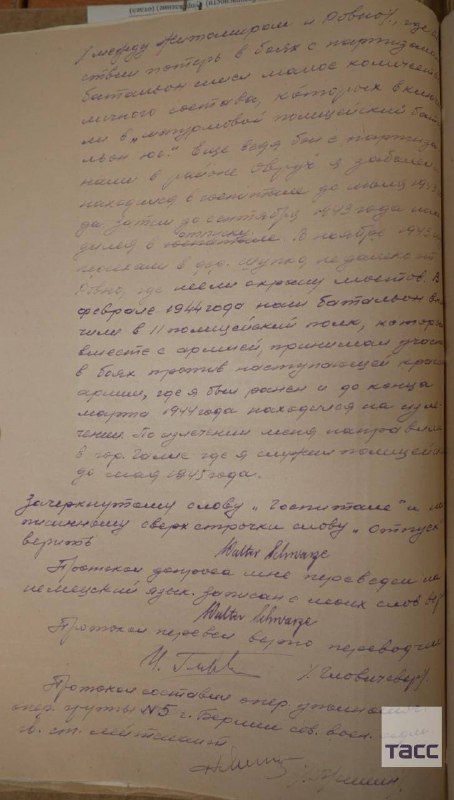 /между Житомиром и Ровно/, где
потерь в боях с партизана
батальон имел малое количест
личного состава, которых включи
ли в „штурмовой полицейский баталь
льон юг.“ Еще ведя бои с партиза
нами в районе Овруч я заболел
находился в госпитале до июля 1943
да, затем до сентября 1943 года нахо
дился в отпуску. В ноябре 1943
переехали в дер. недалеко от
Ровно, где несли охрану мостов. В
феврале 1944 года наш батальон вклю
чили в 11 полицейский полк, которы
вместе с армией, принимал участ
в боях против наступающей красн
армии, где я был ранен и до конца
марта 1944 года находился на изле
чении. По излечении меня направили
в гор. где я служил полицейск
до мая 1945 года.
Зачеркнутому слову „Госпитале“ и на
писанному сверх строчки слову „отпуск
верить
Walter Schwarze
Протокол допроса мне переведен на
немецкий язык. записан с моих слов
Walter Schwarze
Протокол перевел верно переводчик
Протокол составил опер. уполномоч.
опер. группы №5 г. Берлин сов. воен.
ст. лейтенант
ТАСС